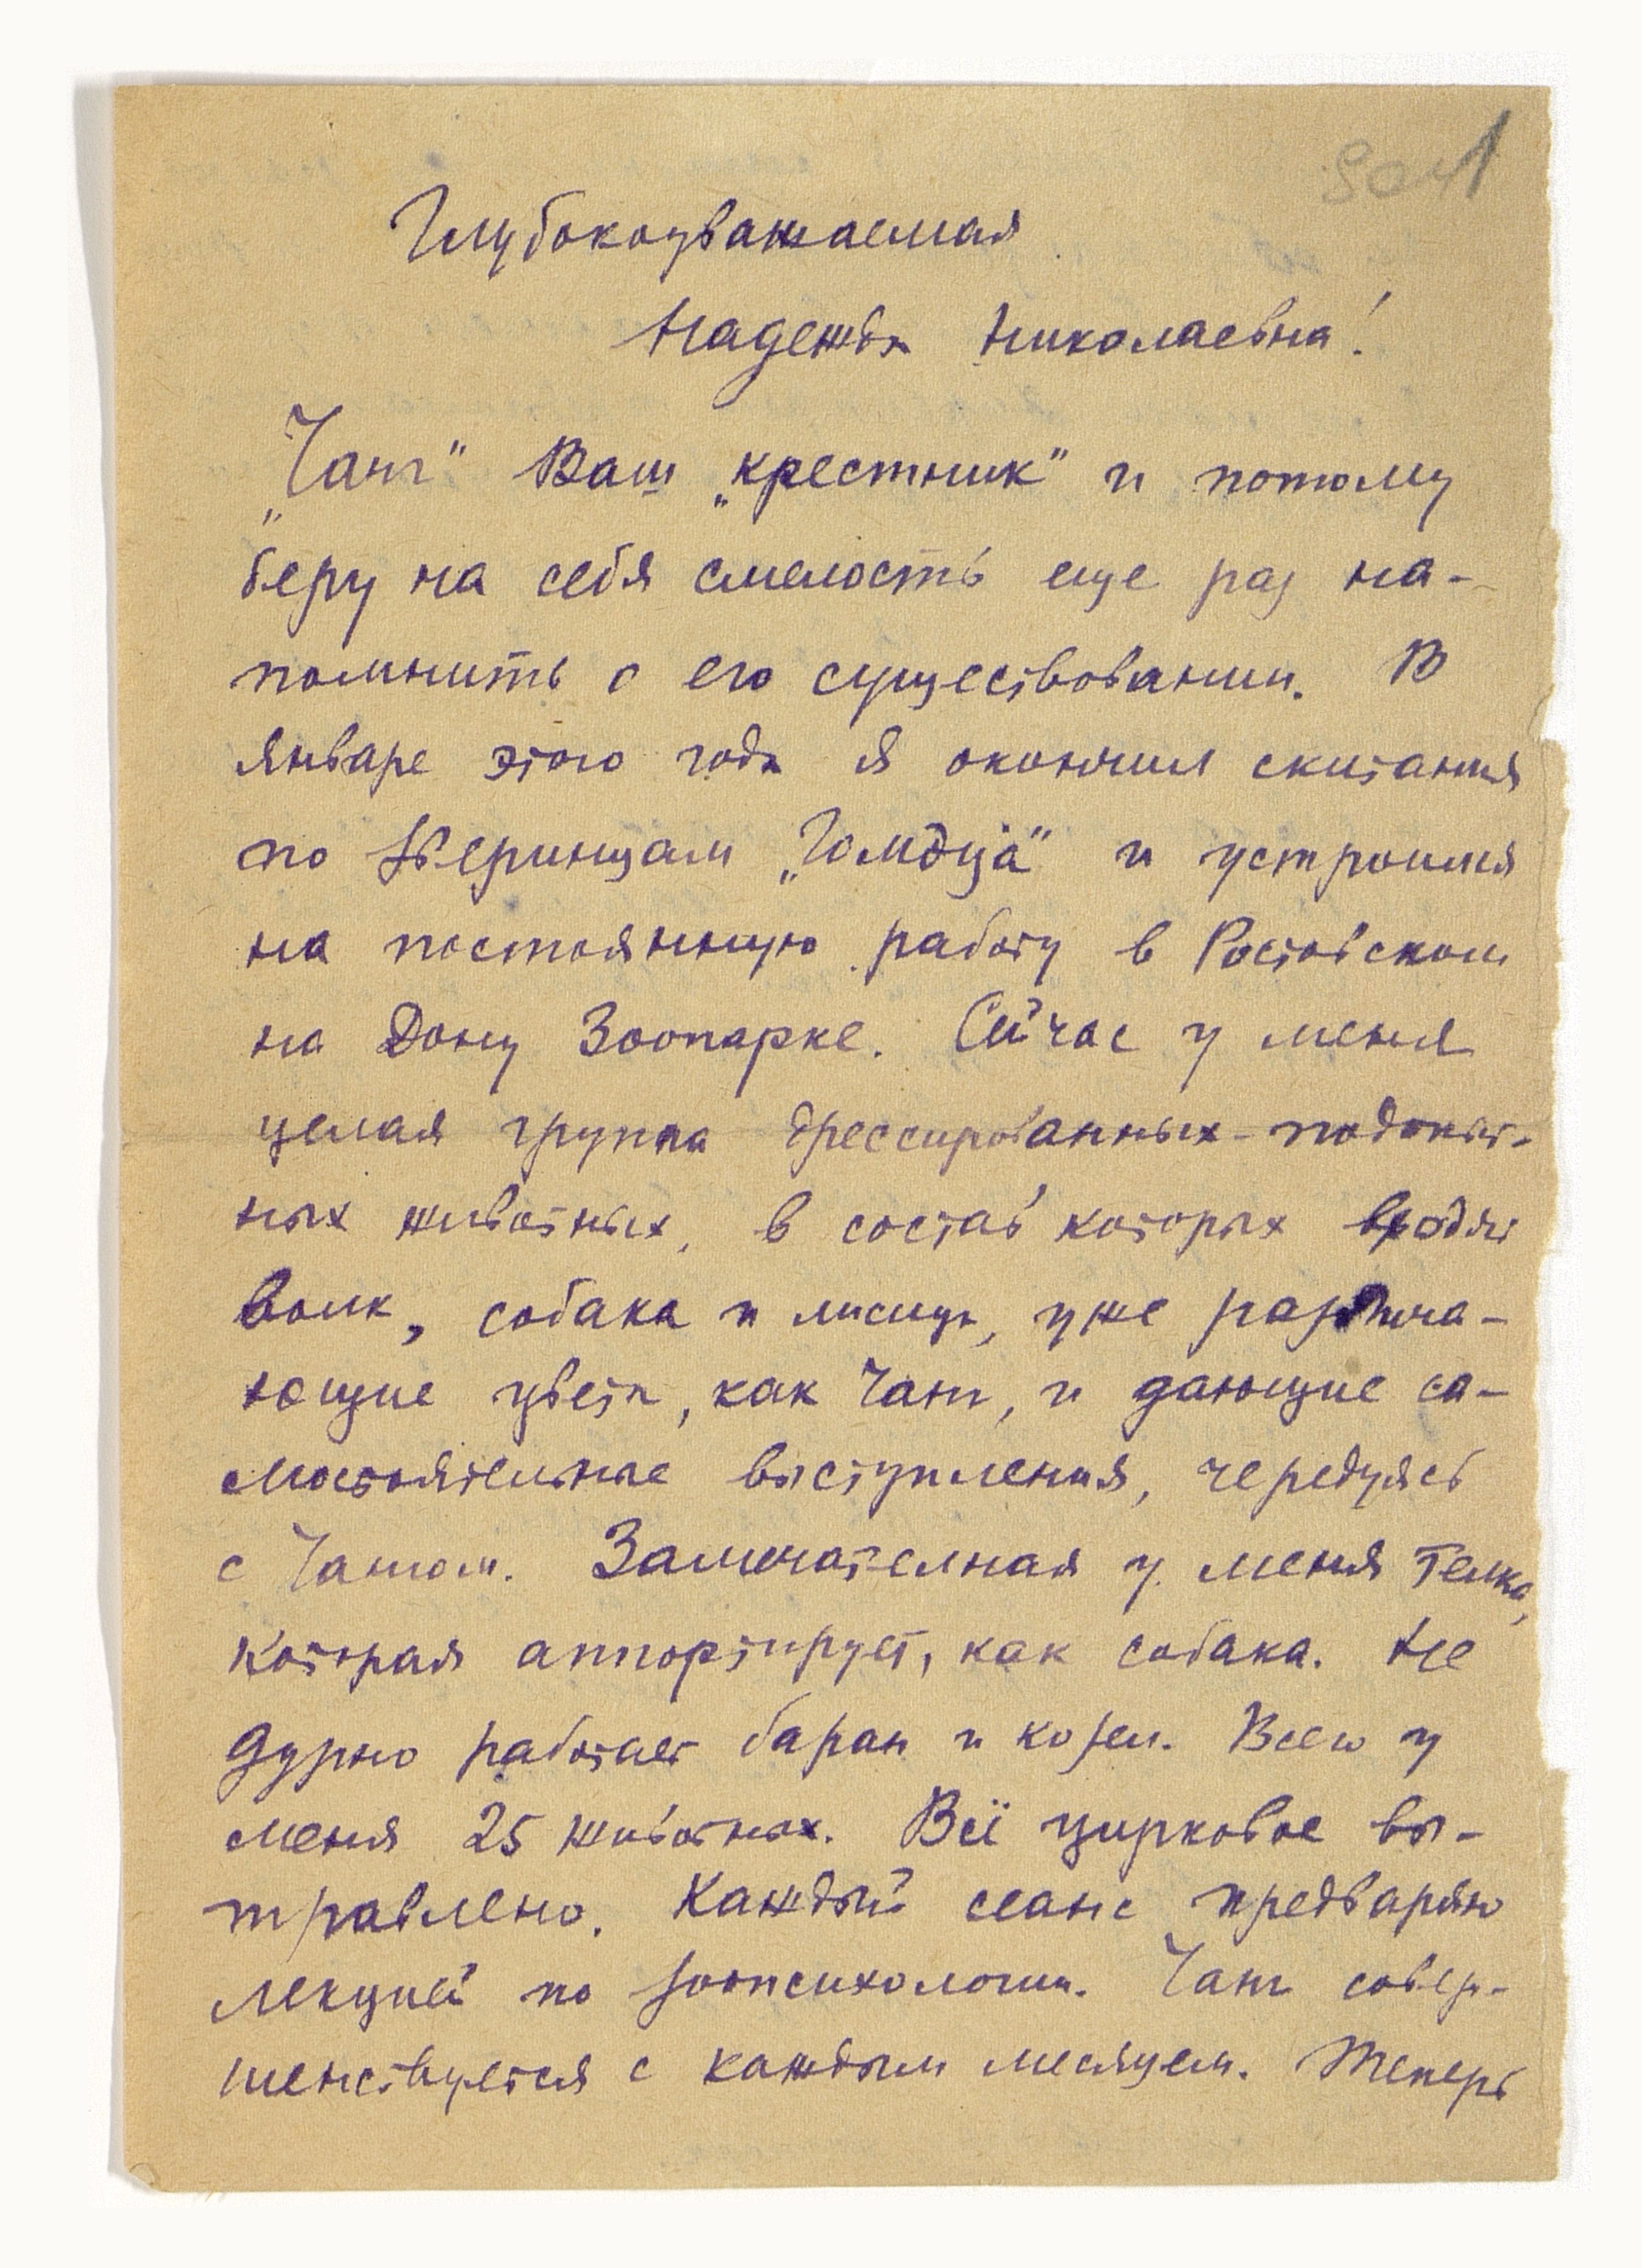 Глубокоуважаемая
Надежда Николаевна!
„Чанг" Ваш „крестник" и потому
беру на себя смелость еще раз на-
помнить о его существовании. В
январе этого года я окончил скитания
по Зверинцам „Гомэца" и устроился
на постоянную работу в Ростовском
на Дону Зоопарке. Сейчас у меня
целая группа дрессированных-подопыт-
ных животных, в состав которых входят
волк, собака и лисица, уже различа-
ющие цвета, как Чанг, и дающие са-
мостоятельные выступления, чередуясь
с Чангом. Замечателная у меня телка,
которая аппортирует, как собака. Не
дурно работает баран и козел. Всего у
меня 25 животных. Всё цирковое вы-
травлено. Каждый сеанс предваряю
лекцией по зоопсихологии. Чанг совер-
шенствуется с каждым месяцем. Теперь